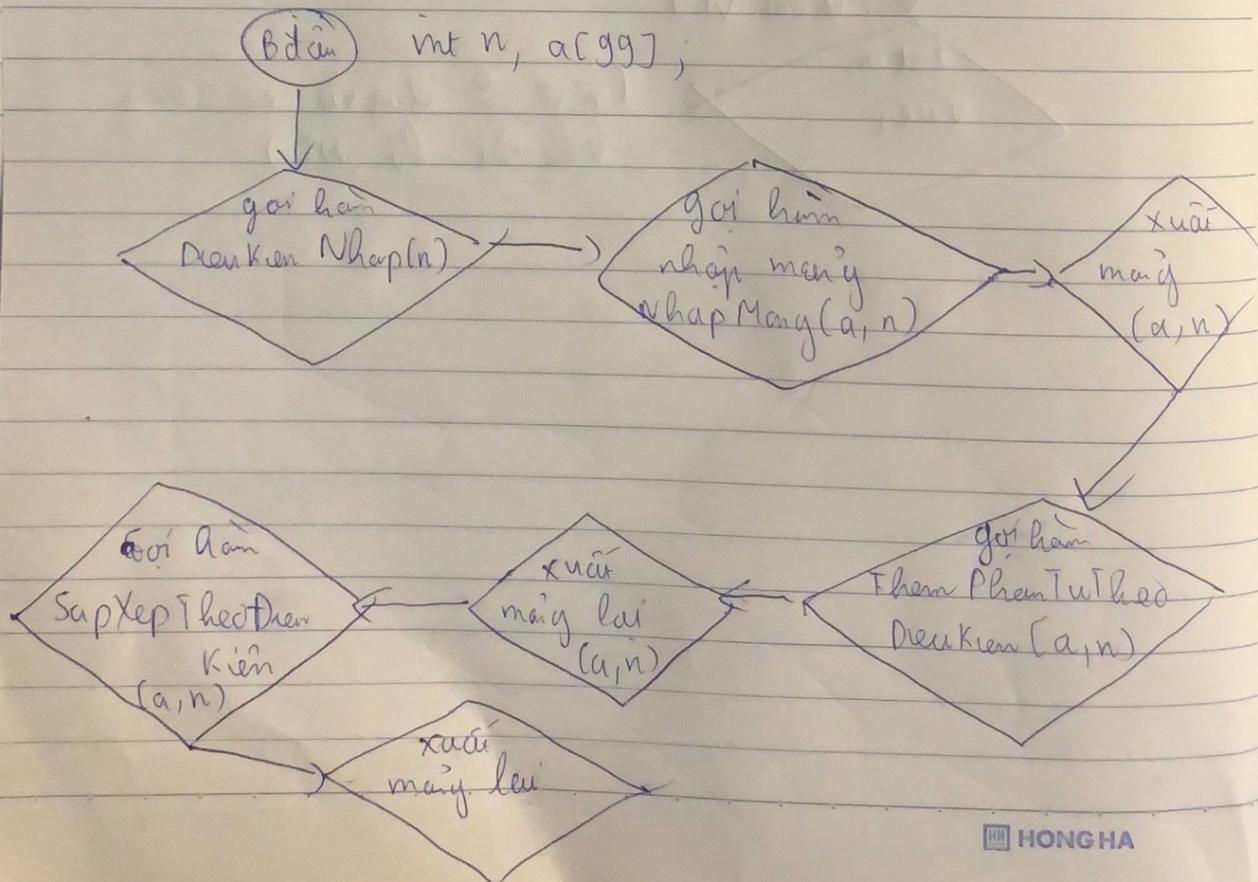 Bđầu int n, a[99];
gọi hàm
DieuKien Nhap(n)
gọi hàm
nhập mảng
NhapMang(a, n)
xuất
mảng
(a, n)
gọi hàm
Them PhanTuTheo
DieuKien(a, n)
xuất
mảng lại
(a, n)
Gọi hàm
SapXepTheoĐieu
Kiên
(a, n)
xuất
mảng lại
HH HONG HA